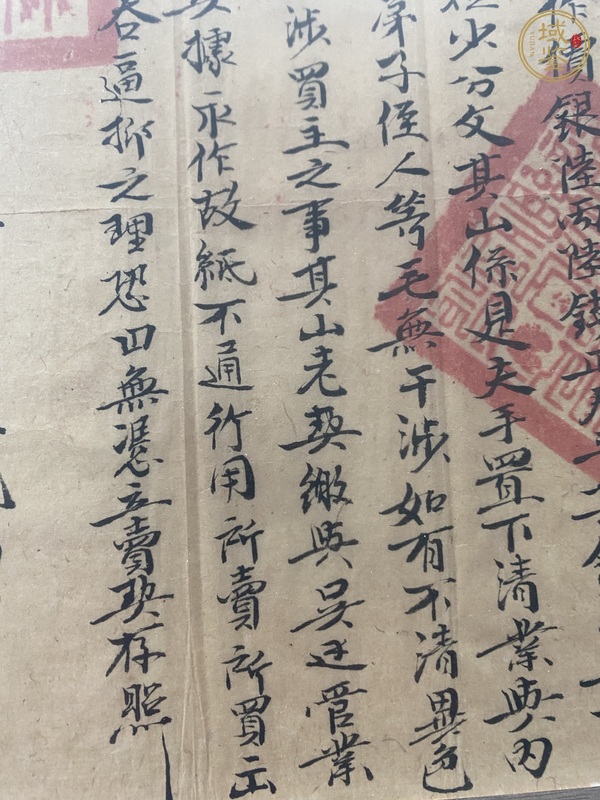 作價銀陸両陸錢正
少分文其山係見夫手置下清業與內
弟子侄人等毛無干涉如有不清異色
涉買主之事其山老契繳與吴边管業
據永作故紙不通行用所賣所買
各逼抑之理恐口無憑立賣契存照